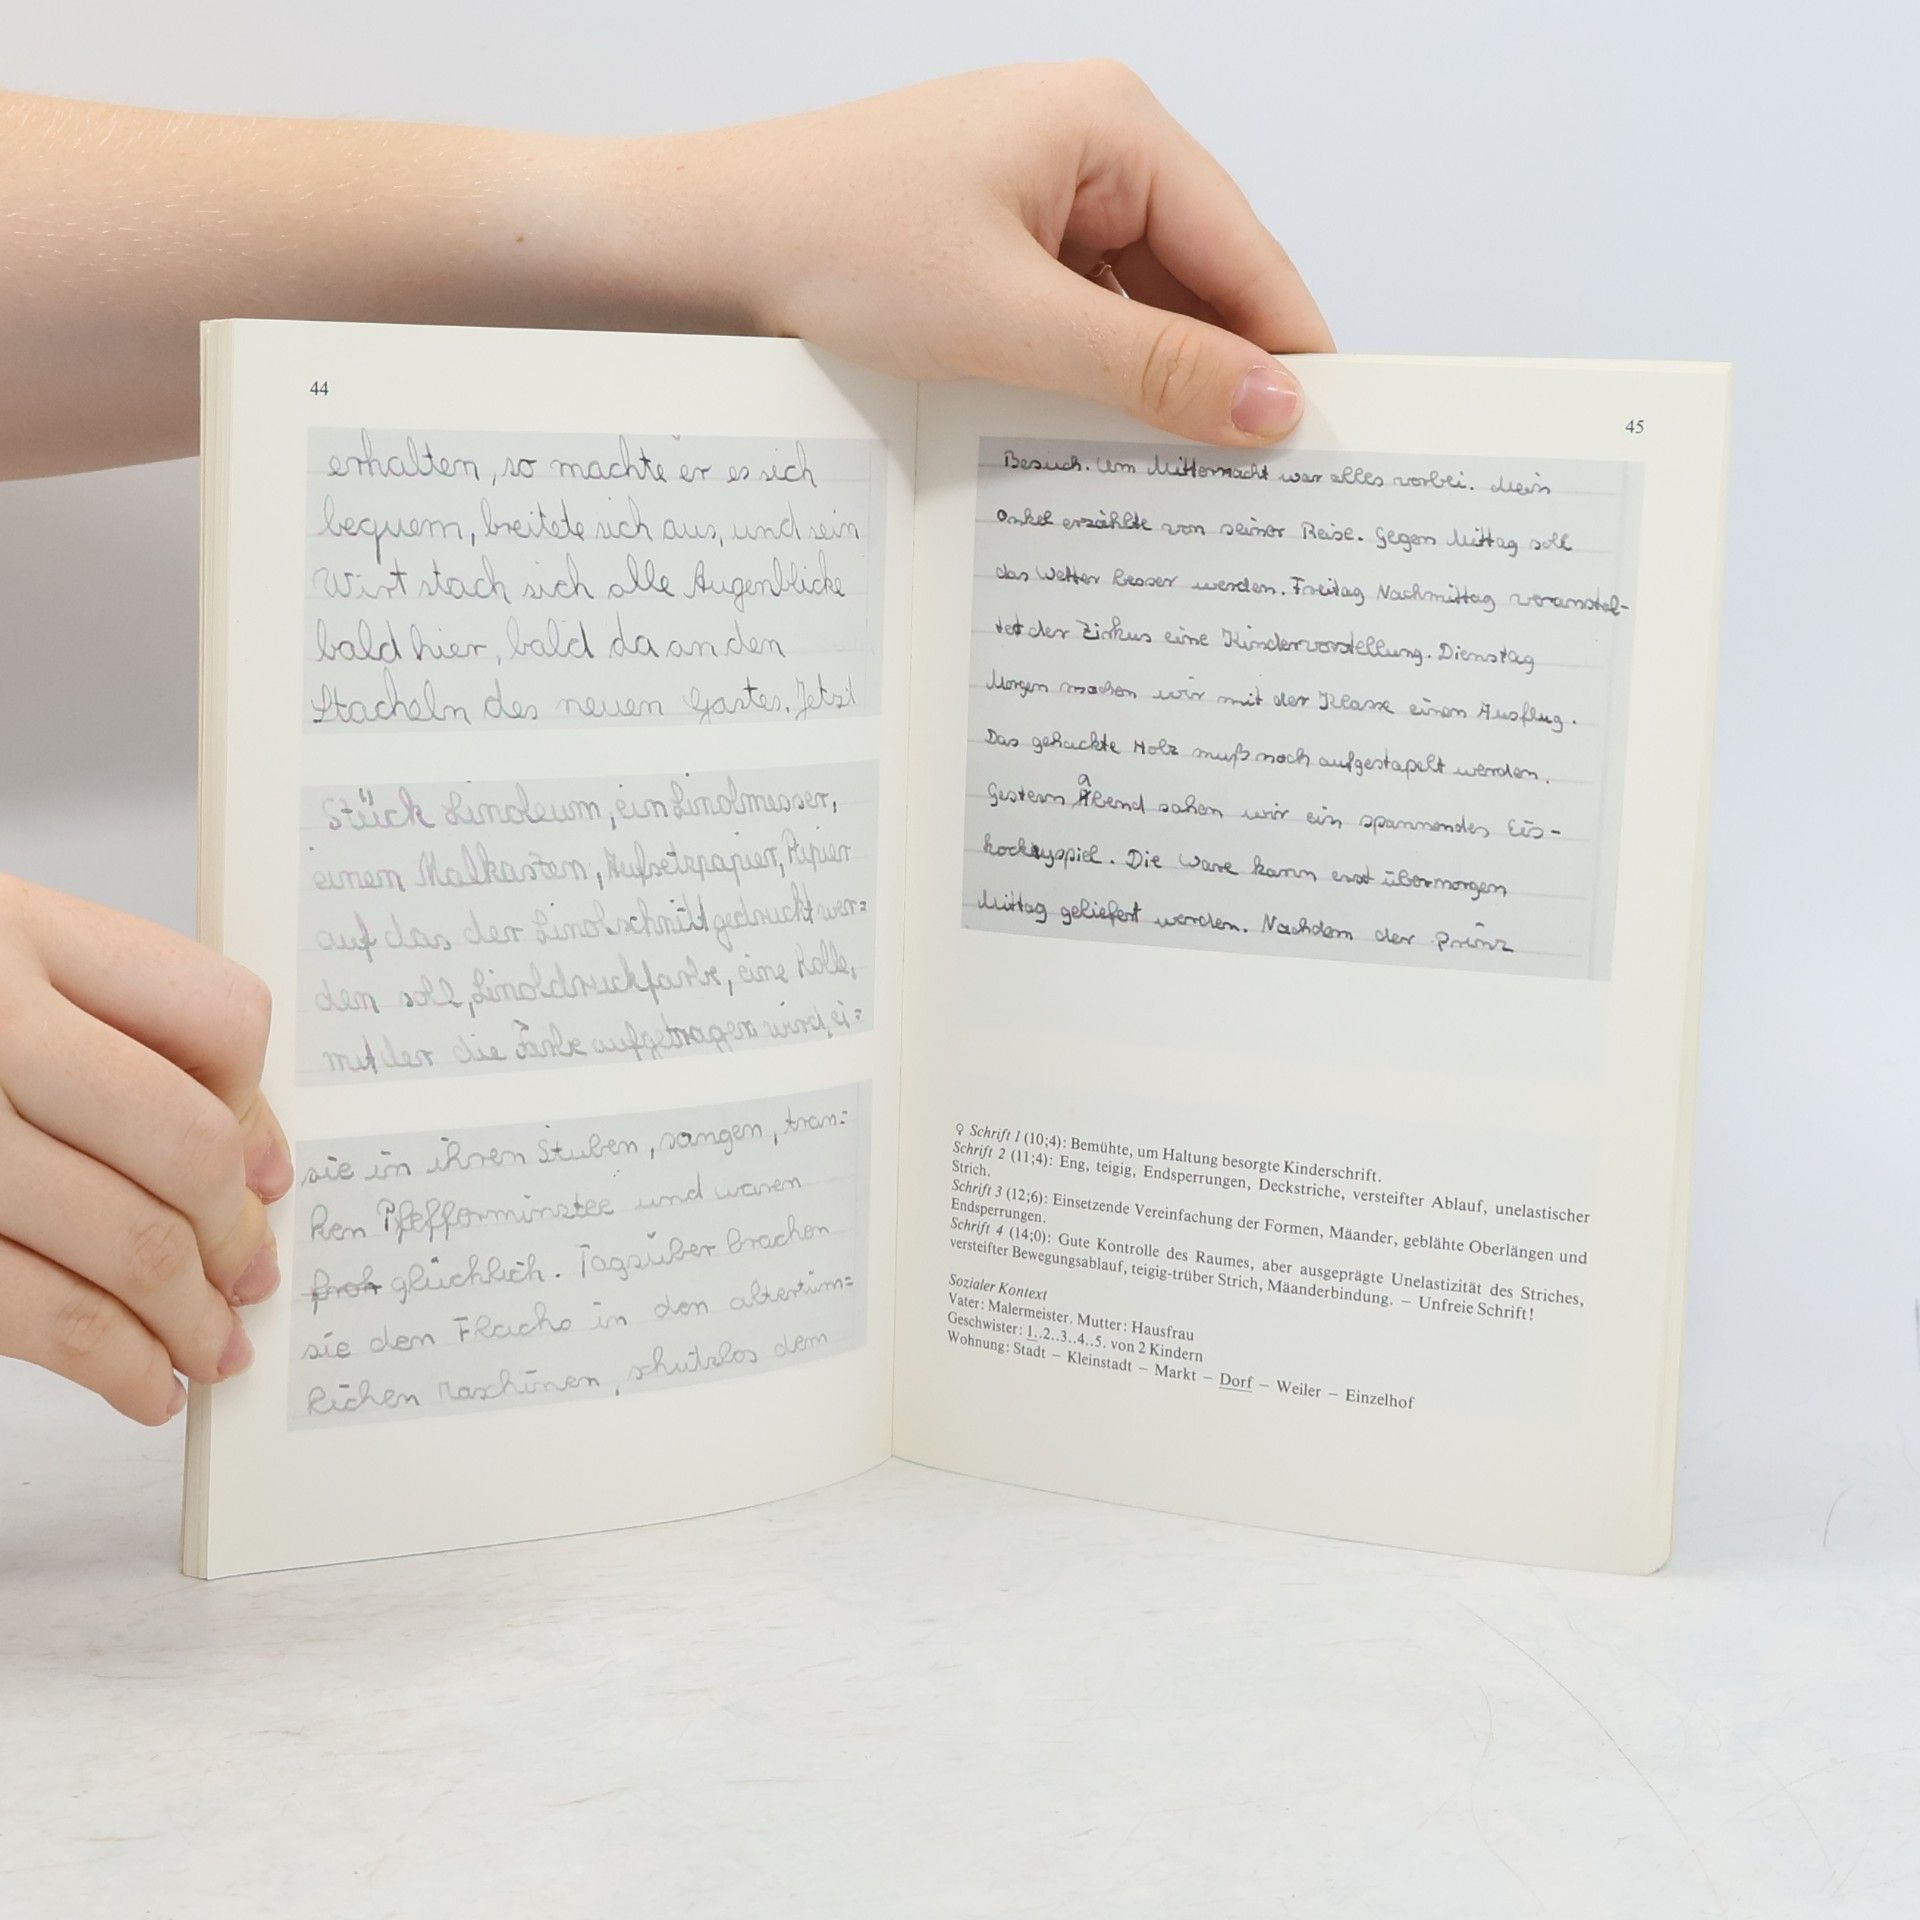 44
erhalten, so machte er es sich
bequem, breitete sich aus, und sein
Wirt stach sich alle Augenblicke
bald hier, bald da an den
Stacheln des neuen Gastes. Jetzt
Stück Linoleum, ein Linolmesser,
einem Malkasten, Aufsetzpapier, Papier
auf das der Linolschnitt gedruckt wer=
den soll, Linoldruckfarbe, eine Rolle,
mit der die Farbe aufgetragen wird, ei=
sie in ihren Stuben, sangen, tran=
ken Pfefferminztee und waren
froh glücklich. Tagsüber brachen
sie den Flachs in den altertüm=
lichen Maschinen, schutzlos dem
45
Besuch. Um Mitternacht war alles vorbei. Mein
Onkel erzählte von seiner Reise. Gegen Mittag soll
das Wetter besser werden. Freitag Nachmittag veranstal-
tet der Zirkus eine Kindervorstellung. Dienstag
Morgen machen wir mit der Klasse einen Ausflug.
Das gehackte Holz muß noch aufgestapelt werden.
Gestern Abend sahen wir ein spannendes Eis-
hockeyspiel. Die Ware kann erst übermorgen
Mittag geliefert werden. Nachdem der Prinz
♀ Schrift 1 (10;4): Bemühte, um Haltung besorgte Kinderschrift.
Schrift 2 (11;4): Eng, teigig, Endsperrungen, Deckstriche, versteifter Ablauf, unelastischer
Strich.
Schrift 3 (12;6): Einsetzende Vereinfachung der Formen, Mäander, geblähte Oberlängen und
Endsperrungen.
Schrift 4 (14;0): Gute Kontrolle des Raumes, aber ausgeprägte Unelastizität des Striches,
versteifter Bewegungsablauf, teigig-trüber Strich, Mäanderbindung. – Unfreie Schrift!
Sozialer Kontext
Vater: Malermeister. Mutter: Hausfrau
Geschwister: 1..2..3..4..5. von 2 Kindern
Wohnung: Stadt – Kleinstadt – Markt – Dorf – Weiler – Einzelhof